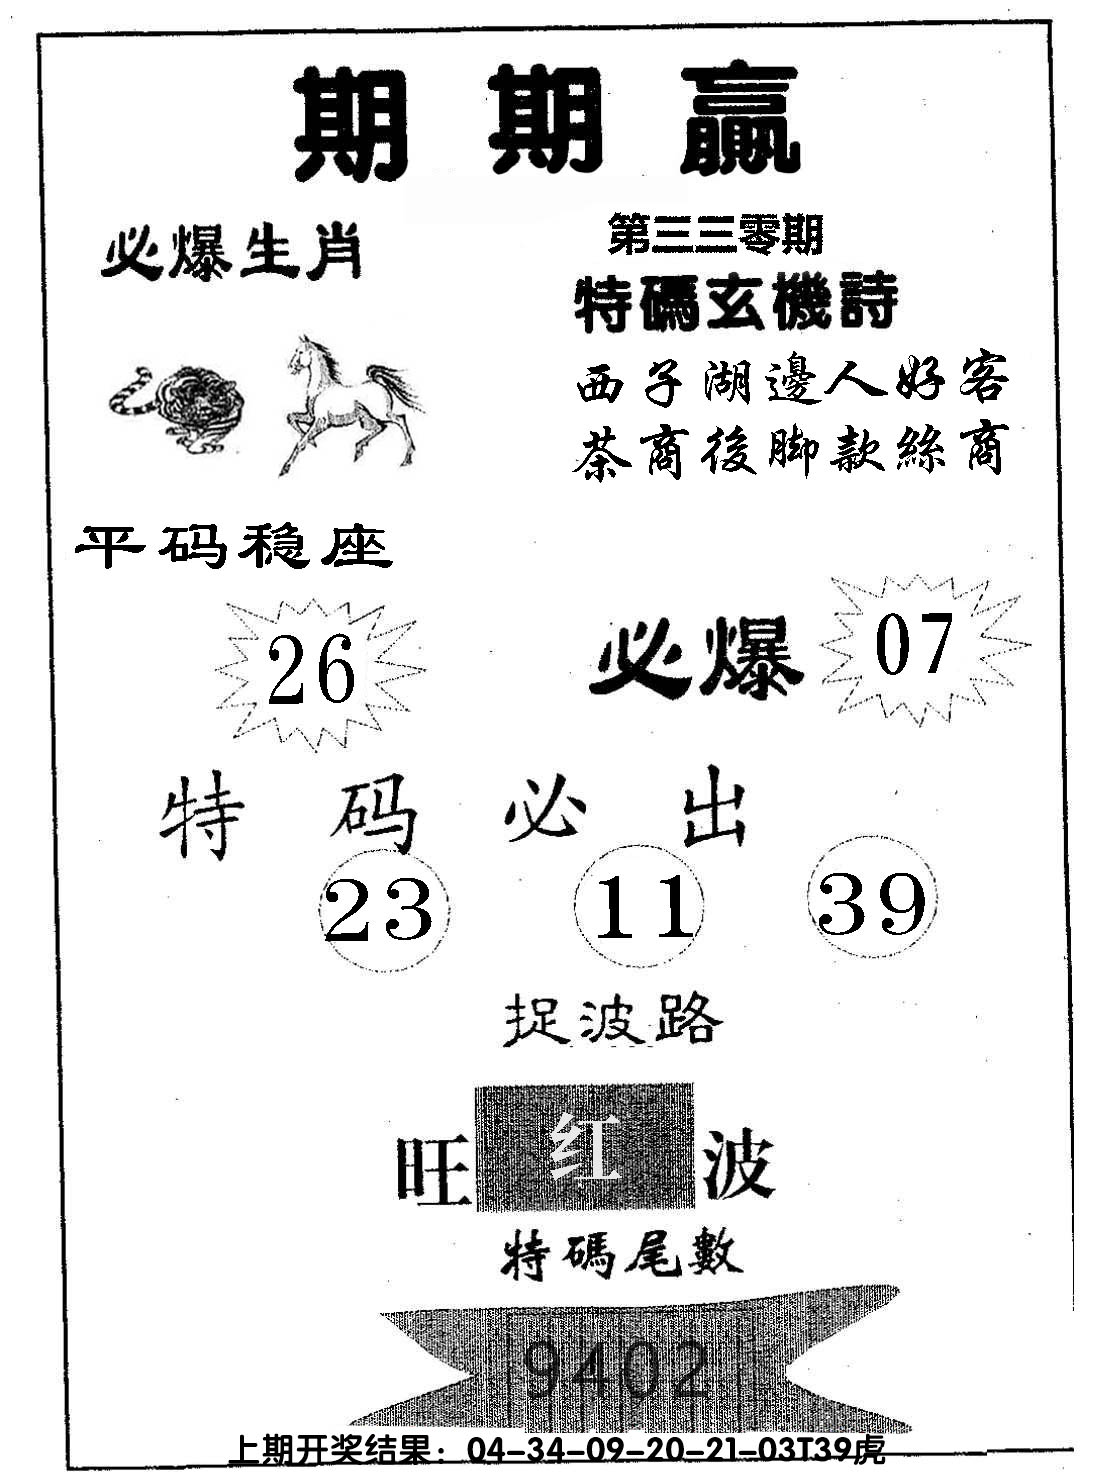 期期赢
必爆生肖
第三三零期
特碼玄機詩
西子湖邊人好客
茶商後脚款絲商
平码稳座
26
必爆 07
特码必出
23 11 39
捉波路
旺红波
特碼尾數
9402
上期开奖结果：04-34-09-20-21-03T39虎